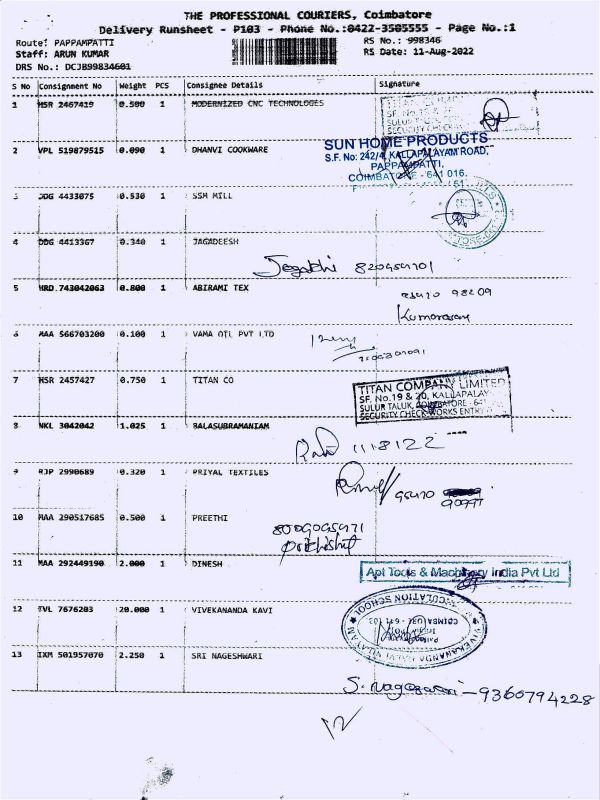 THE PROFESSIONAL COURIERS, Coimbatore
Delivery Runsheet - P103 - Phone No.:0422-3505555 - Page No.:1
Route: PAPPAMPATTI
RS No.: 998346
Staff: ARUN KUMAR
RS Date: 11-Aug-2022
DRS No.: DCJB99834601
S No Consignment No Weight PCS Consignee Details Signature
1 MSR 2467419 0.500 1 MODERNIZED CNC TECHNOLOGES
2 VPL 519879515 0.090 1 DHANVI COOKWARE
SUN HOME PRODUCTS
S.F. No: 242/4, KALLAPALAYAM ROAD,
PAPPAMPATTI,
COIMBATORE - 641 016.
3 DDG 4433075 0.530 1 SSM MILL
4 DDG 4413367 0.340 1 JAGADEESH
5 HRD.743042063 0.800 1 ABIRAMI TEX
98209
6 MAA 566703200 0.100 1 VAMA OIL PVT LTD
7 MSR 2457427 0.750 1 TITAN CO
TITAN COMPANY LIMITED
SF. No.19 & 20, KALLAPALAY
SULUR TALUK, COIMBATORE - 64
SECURITY CHECK WORKS ENTRY
8 NKL 3042042 1.025 1 BALASUBRAMANIAM
11/8/22
9 RJP 2990689 0.320 1 PRIYAL TEXTILES
10 MAA 290517685 0.500 1 PREETHI
11 MAA 292449190 2.000 1 DINESH
Apt Tools & Machinery India Pvt Ltd
12 TVL 7676203 20.000 1 VIVEKANANDA KAVI
13 IXM 501957070 2.250 1 SRI NAGESHWARI
S. Nageswari - 9360794228
12